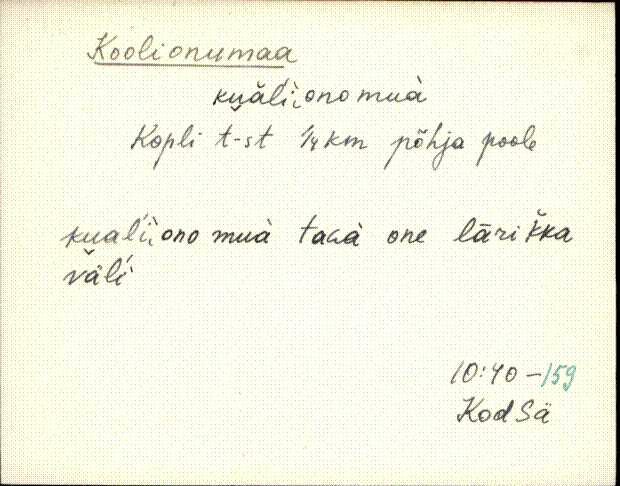 Koolionumaa
kŭăl̆ì,ono muà
Kopli t-st 1/4 km põhja poole
kual̆ì,ono muà tacà one lāri k̆ka
väl̆í
10:40-159
Kod Sä